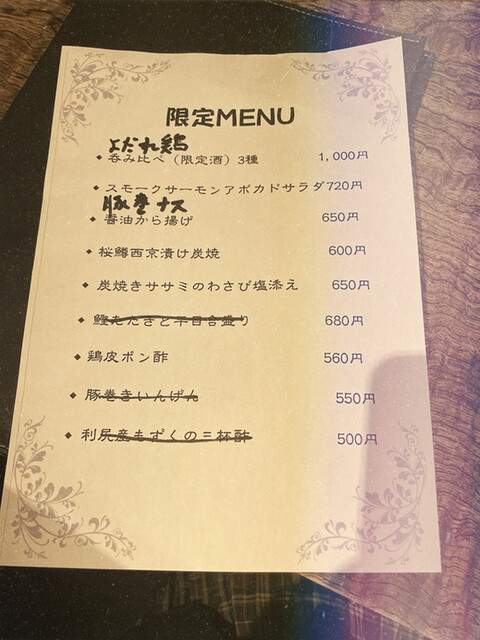 限定MENU
よだれ鶏
呑み比べ（限定酒）3種 1,000円
スモークサーモンアボカドサラダ720円
豚巻ナス
醤油から揚げ 650円
桜鱒西京漬け炭焼 600円
炭焼きササミのわさび塩添え 650円
鰹たたきと平目合盛り 680円
鶏皮ポン酢 560円
豚巻きいんげん 550円
利尻産もずくの三杯酢 500円